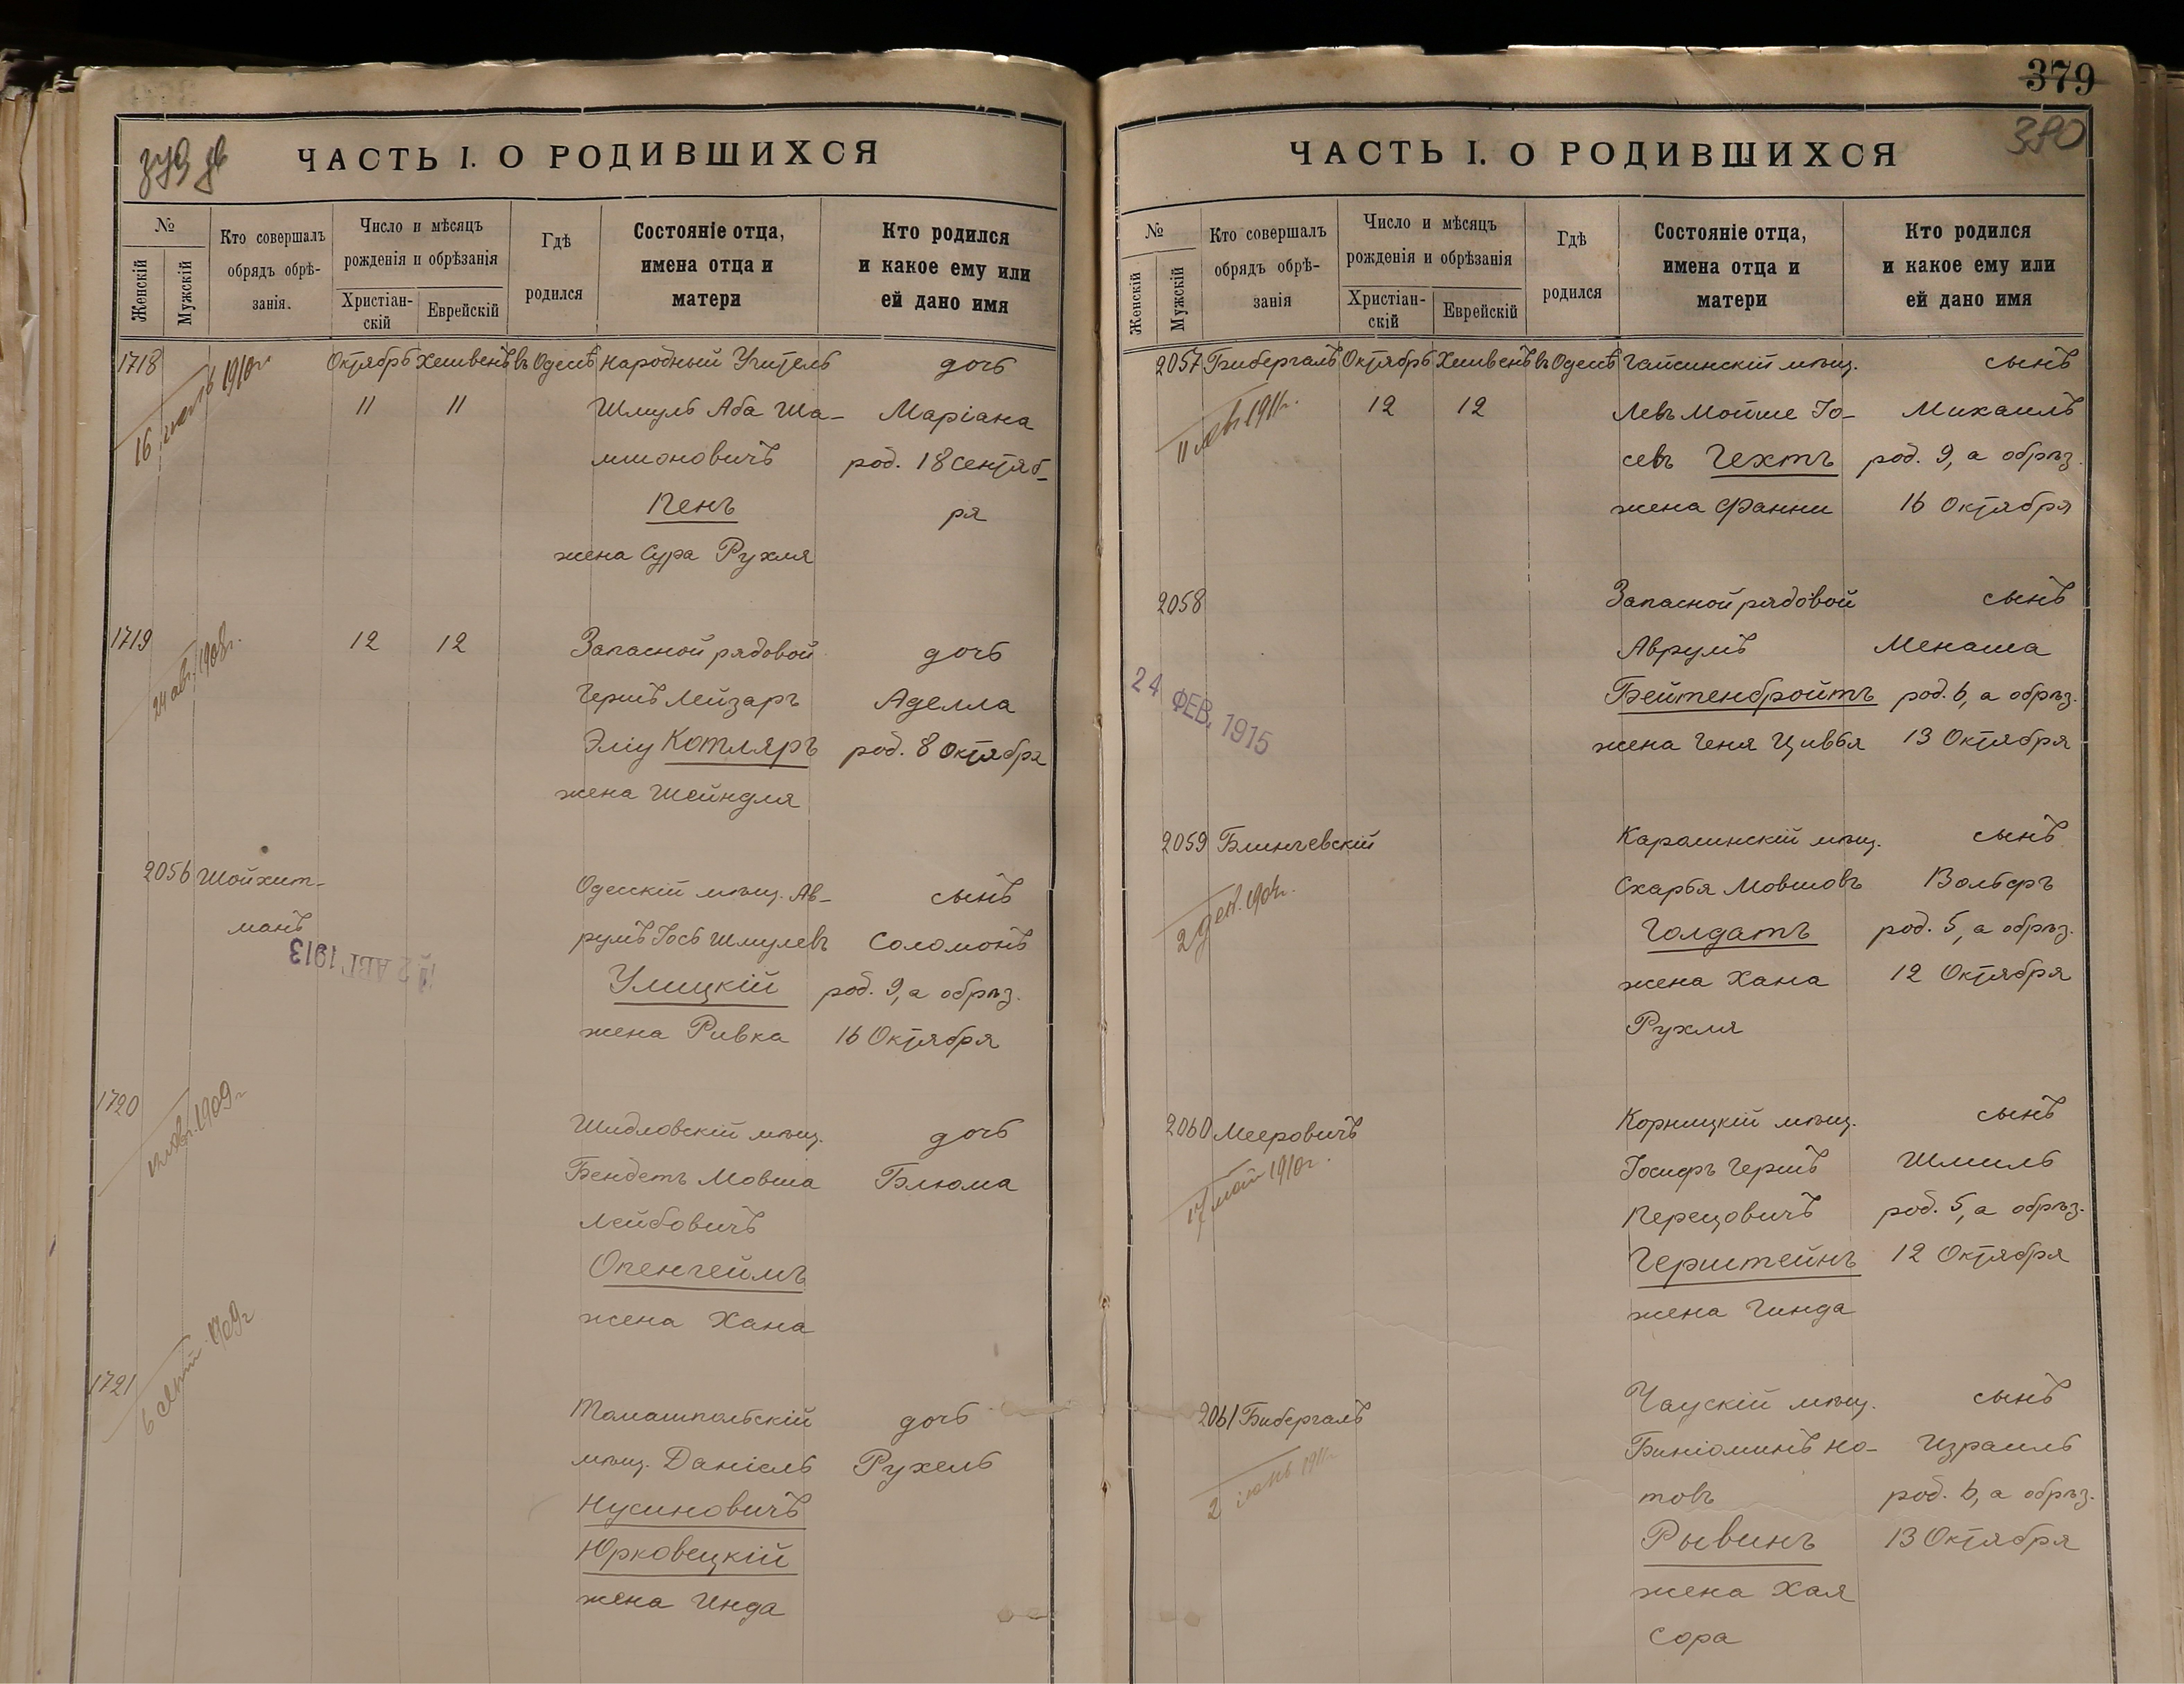 379 дв
ЧАСТЬ I. О РОДИВШИХСЯ
№
Женскій
Мужскій
Кто совершалъ
обрядъ обрѣ-
занія.
Число и мѣсяцъ
рожденія и обрѣзанія
Христіан-
скій
Еврейскій
Гдѣ
родился
Состояніе отца,
имена отца и
матери
Кто родился
и какое ему или
ей дано имя
1718 Октябрь Хешвень въ Одессѣ Народный Учитель дочь
16 1910г.
11 11 Шмуль Аба Ша- Маріана
мионовичъ род. 18 Сентяб-
Пенъ ря
жена Сура Рухля
1719 12 12 Запасной рядовой дочь
24 авг. 1908г.
Гершъ Лейзаръ Аделла
Эліу Котляръ род. 8 Октября
жена Шейндля
2056 Шойхит- Одесскій мѣщ. Ав- сынъ
манъ румъ Іось Шмулевъ Соломонъ
12 АВГ. 1913
Улицкій род. 9, а обрѣз.
жена Ривка 16 Октября
1720 Шидловскій мѣщ. дочь
1909г
Бендетъ Мовша Блюма
Лейбовичъ
Опенгеймъ
жена Хана
1721 Томашпольскій дочь
6 1909г
мѣщ. Даніель Рухель
Нусиновичъ
Юрковецкій
жена Инда
379
380
ЧАСТЬ I. О РОДИВШИХСЯ
№
Женскій
Мужскій
Кто совершалъ
обрядъ обрѣ-
занія
Число и мѣсяцъ
рожденія и обрѣзанія
Христіан-
скій
Еврейскій
Гдѣ
родился
Состояніе отца,
имена отца и
матери
Кто родился
и какое ему или
ей дано имя
2057 Бибергалъ Октябрь Хешвень въ Одессѣ Гайсинскій мѣщ. сынъ
11 1911г.
12 12 Левъ Мойше Іо- Михаилъ
севъ Гехтъ род. 9, а обрѣз.
жена Фанни 16 Октября
2058 Запасной рядовой сынъ
Аврумъ Менаша
24 ФЕВ. 1915
Бейтенбройтъ род. 6, а обрѣз.
жена Геня Цивья 13 Октября
2059 Блинчевскій Каролинскій мѣщ. сынъ
2 дек. 1904г.
Схарья Мовшовъ Вольфъ
Голдатъ род. 5, а обрѣз.
жена Хана 12 Октября
Рухля
2060 Мееровичъ Корницкій мѣщ. сынъ
17 май 1910г.
Іосифъ Гершъ Шмиль
Перецовичъ род. 5, а обрѣз.
Герштейнъ 12 Октября
жена Гинда
2061 Бибергалъ Чаускій мѣщ. сынъ
2 1911г
Биніоминъ Но- Израиль
товъ род. 6, а обрѣз.
Рывинъ 13 Октября
жена Хая
Сора